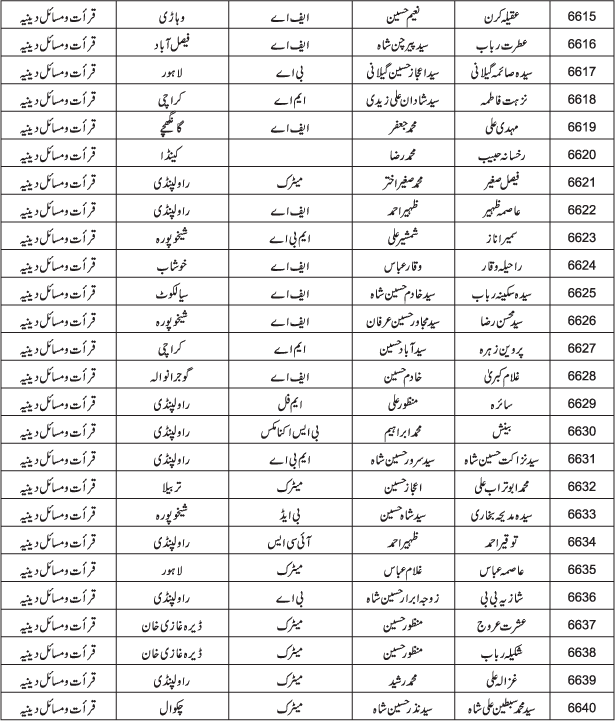 6615 عقیلہ کرن نعیم حسین ایف اے وہاڑی قرأت ومسائل دینیہ
6616 عطرت رباب سید پیر چن شاہ ایف اے فیصل آباد قرأت ومسائل دینیہ
6617 سیدہ صائمہ گیلانی سید اعجاز حسین گیلانی بی اے لاہور قرأت ومسائل دینیہ
6618 نزہت فاطمہ سید شادان علی زیدی ایم اے کراچی قرأت ومسائل دینیہ
6619 مہدی علی محمد جعفر ایف اے گانگھچے قرأت ومسائل دینیہ
6620 رخسانہ حبیب محمد رضا کینڈا قرأت ومسائل دینیہ
6621 فیصل صغیر محمد صغیر اختر میٹرک راولپنڈی قرأت ومسائل دینیہ
6622 عاصمہ ظہیر ظہیر احمد ایف اے راولپنڈی قرأت ومسائل دینیہ
6623 سمیرا ناز شمشیر علی ایم بی اے شیخوپورہ قرأت ومسائل دینیہ
6624 راحیلہ وقار وقار عباس ایف اے خوشاب قرأت ومسائل دینیہ
6625 سیدہ سکینہ رباب سید خادم حسین شاہ ایف اے سیالکوٹ قرأت ومسائل دینیہ
6626 سید محسن رضا سید مجاور حسین عرفان ایف اے شیخوپورہ قرأت ومسائل دینیہ
6627 پروین زہرہ سید آباد حسین ایم اے کراچی قرأت ومسائل دینیہ
6628 غلام کبریٰ خادم حسین ایف اے گوجرانوالہ قرأت ومسائل دینیہ
6629 سائرہ منظور علی ایم فل راولپنڈی قرأت ومسائل دینیہ
6630 بینش محمد ابراہیم بی ایس اکنامکس راولپنڈی قرأت ومسائل دینیہ
6631 سید نزاکت حسین شاہ سید سرور حسین شاہ ایم بی اے راولپنڈی قرأت ومسائل دینیہ
6632 محمد ابوتراب علی اعجاز حسین میٹرک تربیلا قرأت ومسائل دینیہ
6633 سیدہ مدیحہ بخاری سید شاہ حسین بی ایڈ شیخوپورہ قرأت ومسائل دینیہ
6634 توقیر احمد ظہیر احمد آئی سی ایس راولپنڈی قرأت ومسائل دینیہ
6635 عاصمہ عباس غلام عباس میٹرک لاہور قرأت ومسائل دینیہ
6636 شازیہ بی بی زوجہ ابرار حسین شاہ بی اے راولپنڈی قرأت ومسائل دینیہ
6637 عشرت عروج منظور حسین میٹرک ڈیرہ غازی خان قرأت ومسائل دینیہ
6638 شکیلہ رباب منظور حسین میٹرک ڈیرہ غازی خان قرأت ومسائل دینیہ
6639 غزالہ علی محمد رشید میٹرک راولپنڈی قرأت ومسائل دینیہ
6640 سید محمد سبطین علی شاہ سید نذر حسین شاہ میٹرک چکوال قرأت ومسائل دینیہ